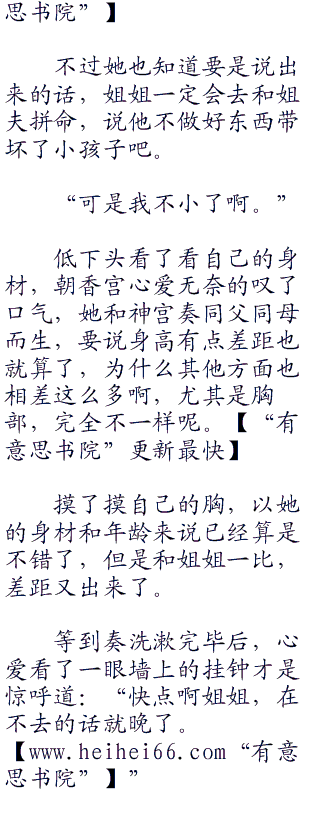 思书院”】
不过她也知道要是说出
来的话，姐姐一定会去和姐
夫拼命，说他不做好东西带
坏了小孩子吧。
“可是我不小了啊。”
低下头看了看自己的身
材，朝香宫心爱无奈的叹了
口气，她和神宫奏同父同母
而生，要说身高有点差距也
就算了，为什么其他方面也
相差这么多啊，尤其是胸
部，完全不一样呢。【“有
意思书院”更新最快】
摸了摸自己的胸，以她
的身材和年龄来说已经算是
不错了，但是和姐姐一比，
差距又出来了。
等到奏洗漱完毕后，心
爱看了一眼墙上的挂钟才是
惊呼道：“快点啊姐姐，在
不去的话就晚了。
【www.heihei66.com“有意
思书院”】”